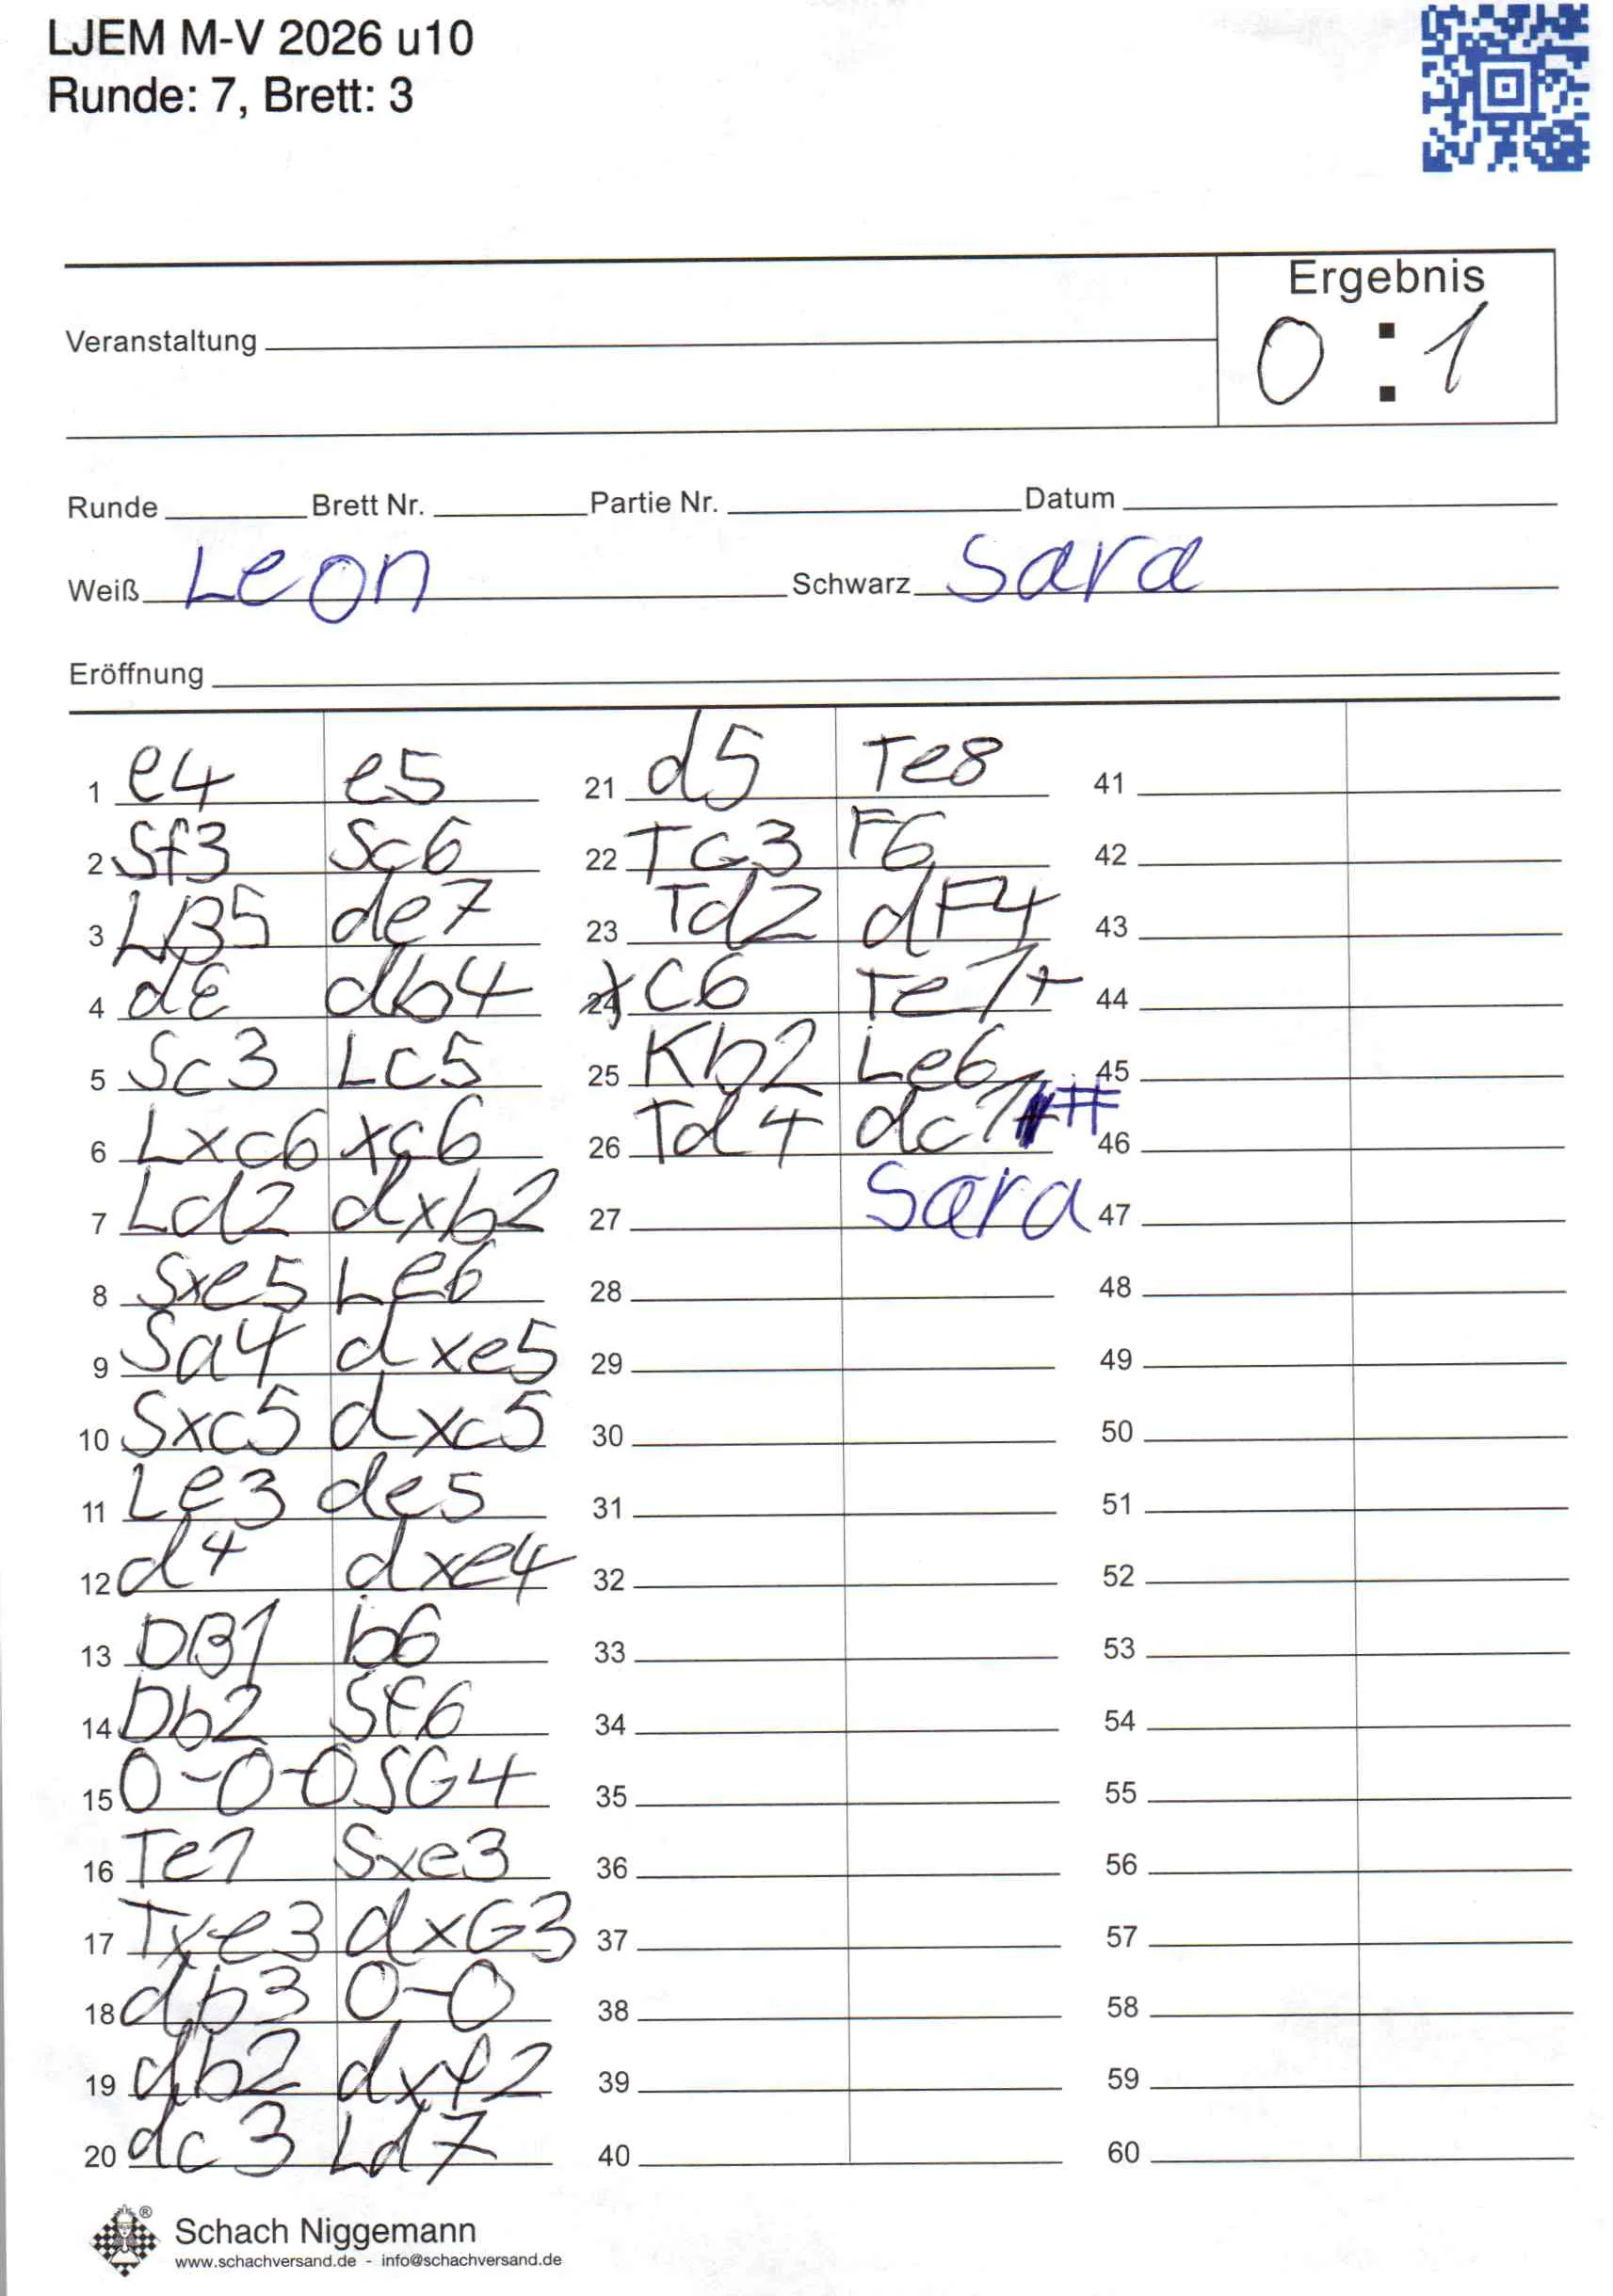 LJEM M-V 2026 u10
Runde: 7, Brett: 3
Ergebnis
Veranstaltung
0 : 1
Runde Brett Nr. Partie Nr. Datum
Weiß Leon Schwarz Sara
Eröffnung
1 e4 e5 21 d5 Te8 41
2 Sf3 Sc6 22 TG3 F6 42
3 LB5 de7 23 Td2 dF4 43
4 db4 24 xc6 Te1+ 44
5 Sc3 Lc5 25 Kb2 Le6 45
6 Lxc6 xc6 26 Td4 dc1# 46
7 Ld2 dxb2 27 Sara 47
8 Sxe5 Le6 28 48
9 Sa4 dxe5 29 49
10 Sxc5 dxc5 30 50
11 Le3 de5 31 51
12 d4 dxe4 32 52
13 DB1 b6 33 53
14 Db2 Sf6 34 54
15 0-0-0 SG4 35 55
16 Te1 Sxe3 36 56
17 Txe3 dxG3 37 57
18 db3 0-0 38 58
19 db2 dxf2 39 59
20 dc3 Ld7 40 60
Schach Niggemann
www.schachversand.de - info@schachversand.de